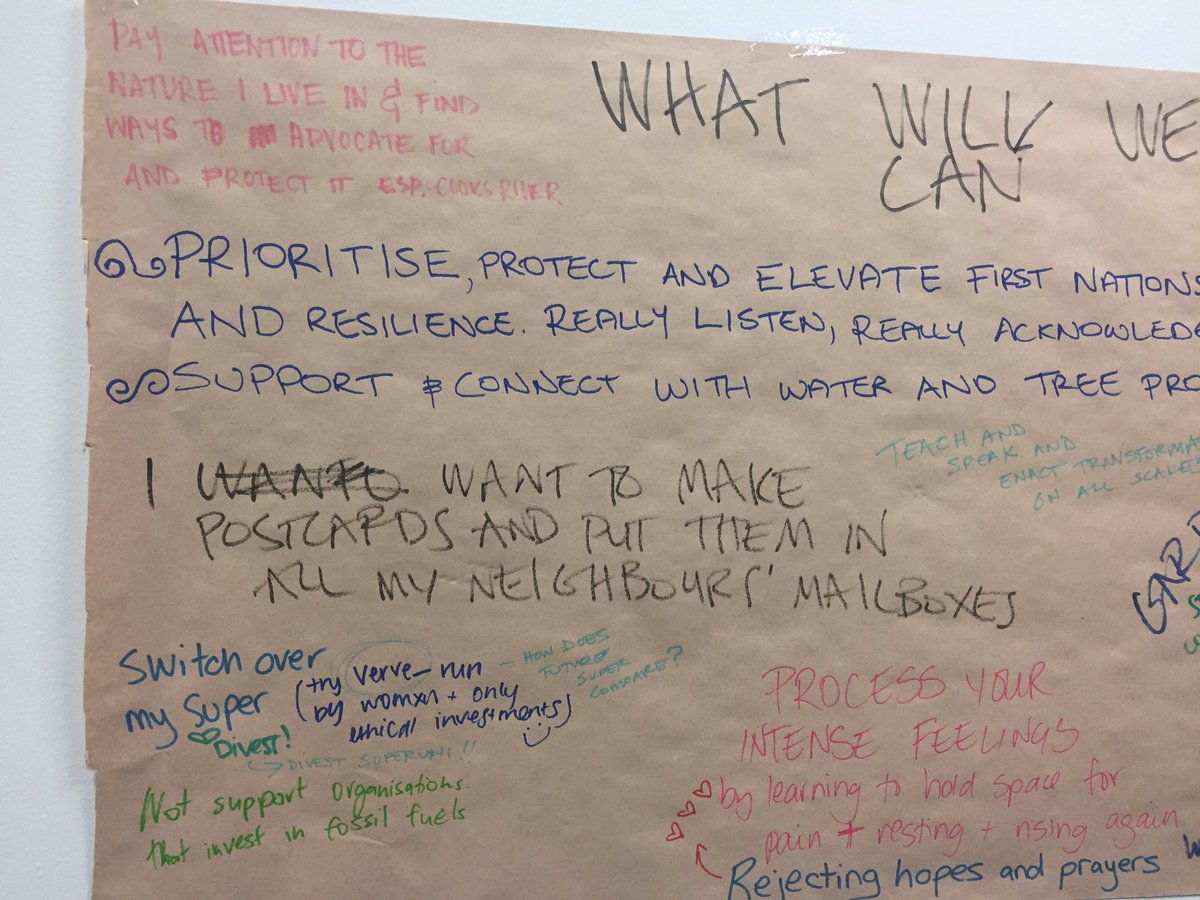 PAY ATTENTION TO THE
NATURE I LIVE IN & FIND
WAYS TO ADVOCATE FOR
AND PROTECT IT ESP. COOKS RIVER
WHAT WILL WE
CAN
PRIORITISE, PROTECT AND ELEVATE FIRST NATIONS
AND RESILIENCE. REALLY LISTEN, REALLY ACKNOWLEDG
SUPPORT & CONNECT WITH WATER AND TREE PRO
TEACH AND
SPEAK AND
ENACT TRANSFORMA
ON ALL SCALES
I WANT TO MAKE
POSTCARDS AND PUT THEM IN
ALL MY NEIGHBOURS' MAILBOXES
Switch over
my super
(try verve - run
by womxn + only
ethical investments)
- HOW DOES
FUTURE
SUPER
COMPARE?
DIVEST!
DIVEST SUPERUNI!!
Not support organisations
that invest in fossil fuels
PROCESS YOUR
INTENSE FEELINGS
by learning to hold space for
pain + resting + rising again
Rejecting hopes and prayers